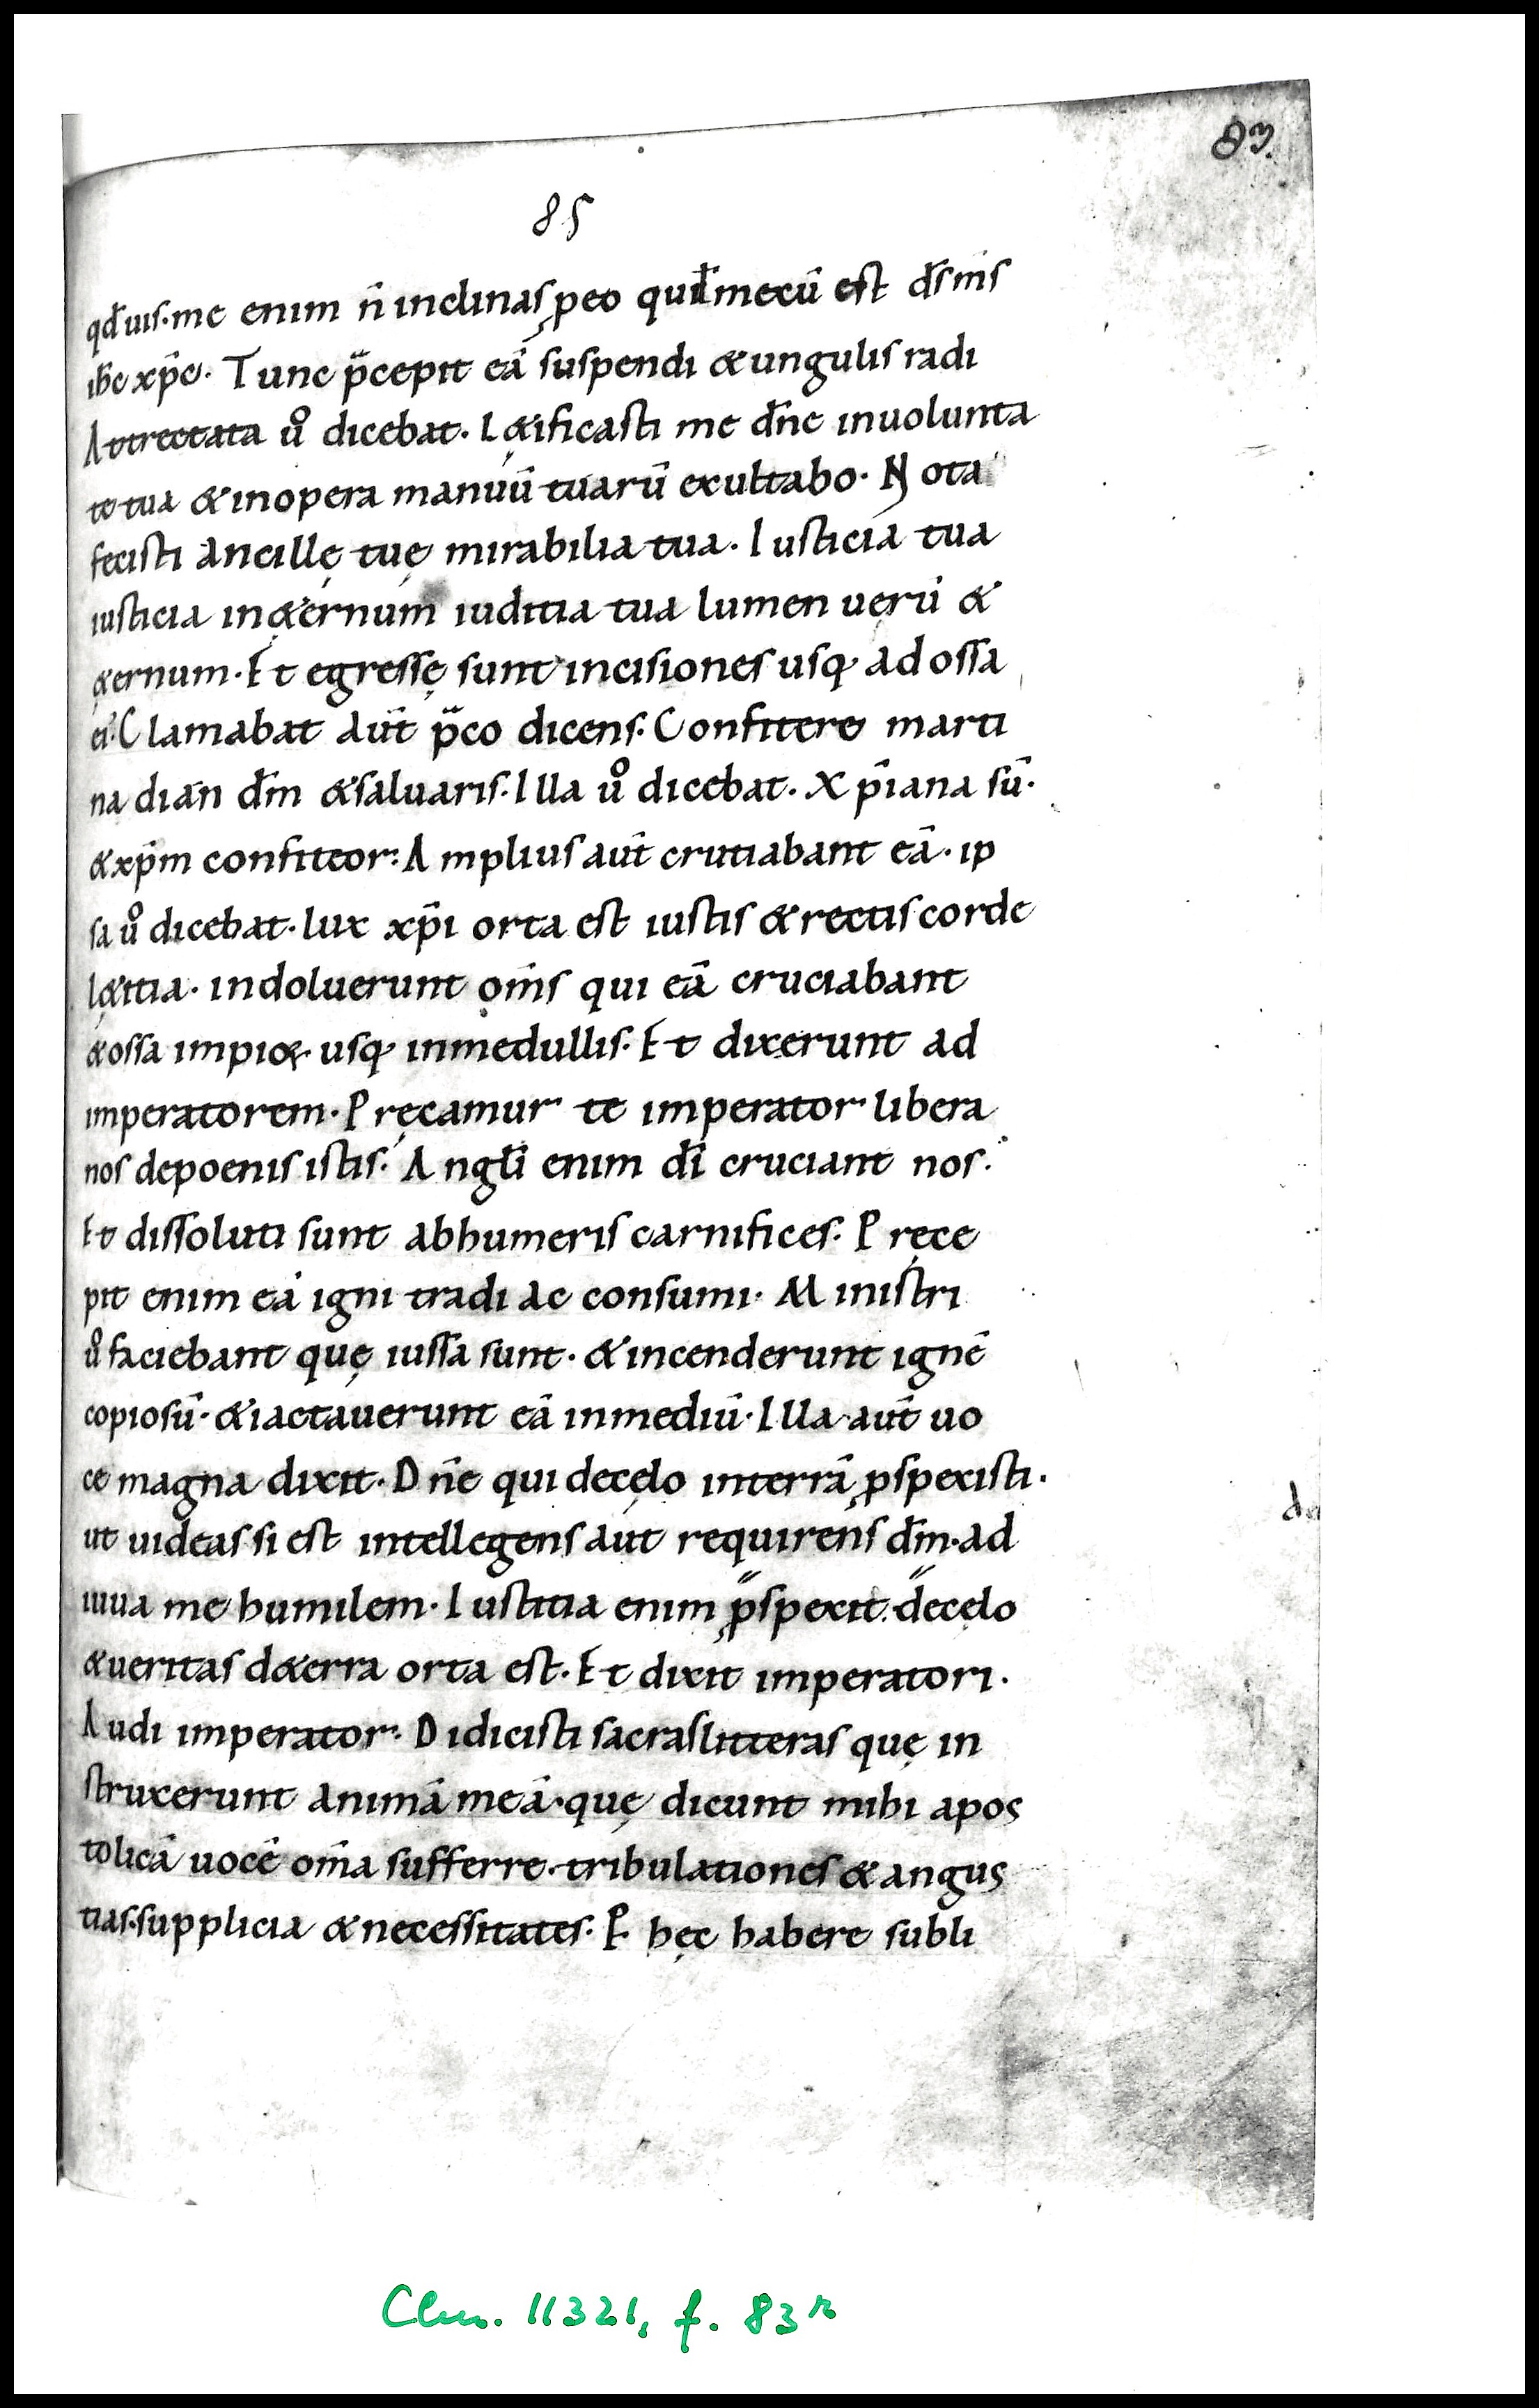 83
85
qđ uis. me enim n̄ inclinas peo quia mecū est d̄s m̄s
ihc xp̄e. Tunc p̄cepit eā suspendi & ungulis radi
Attrectata ů dicebat. Lę&ificasti me dn̄e inuolunta
te tua & inopera manuū tuarū exultabo. Nota
fecisti ancillę tuę mirabilia tua. Iusticia tua
iusticia in ę&ernum iuditia tua lumen uerū &
ę&ernum. Et egressę sunt incisiones usq; ad ossa
ei'. Clamabat aut̄ p̄co dicens. Confitere marti
na dian̄ dm̄ & saluaris. Illa ů dicebat. Xp̄iana sū.
& xp̄m confiteor. Amplius aut̄ crutiabant eā. ip
sa ů dicebat. lux xp̄i orta est iustis & rectis corde
lę&itia. indoluerunt om̄s qui eā cruciabant
& ossa impioꝝ usq; inmedullis. Et dixerunt ad
imperatorem. Pręcamur te imperator libera
nos depoenis istis. Angłi enim dī cruciant nos.
Et dissoluti sunt abhumeris carnifices. Pręce
pit enim eā igni tradi ac consumi. Ministri
ů faciebant quę iussa sunt. & incenderunt ignē
copiosū. & iactauerunt eā inmediū. Illa aut̄ uo
ce magna dixit. Dn̄e qui decęlo interrā pspexisti.
ut uideas si est intellegens aut requirens dm̄. ad
iuua me humilem. Iustitia enim pspexit decęlo
& ueritas d&erra orta est. Et dixit imperatori.
Audi imperator. Didicisti sacras litteras quę in
struxerunt animā meā. quę dicunt mihi apos
tolicā uocē om̄a sufferre. tribulationes & angus
tias. supplicia & necessitates. P. hęc habere subli
Clm. 11321, f. 83r